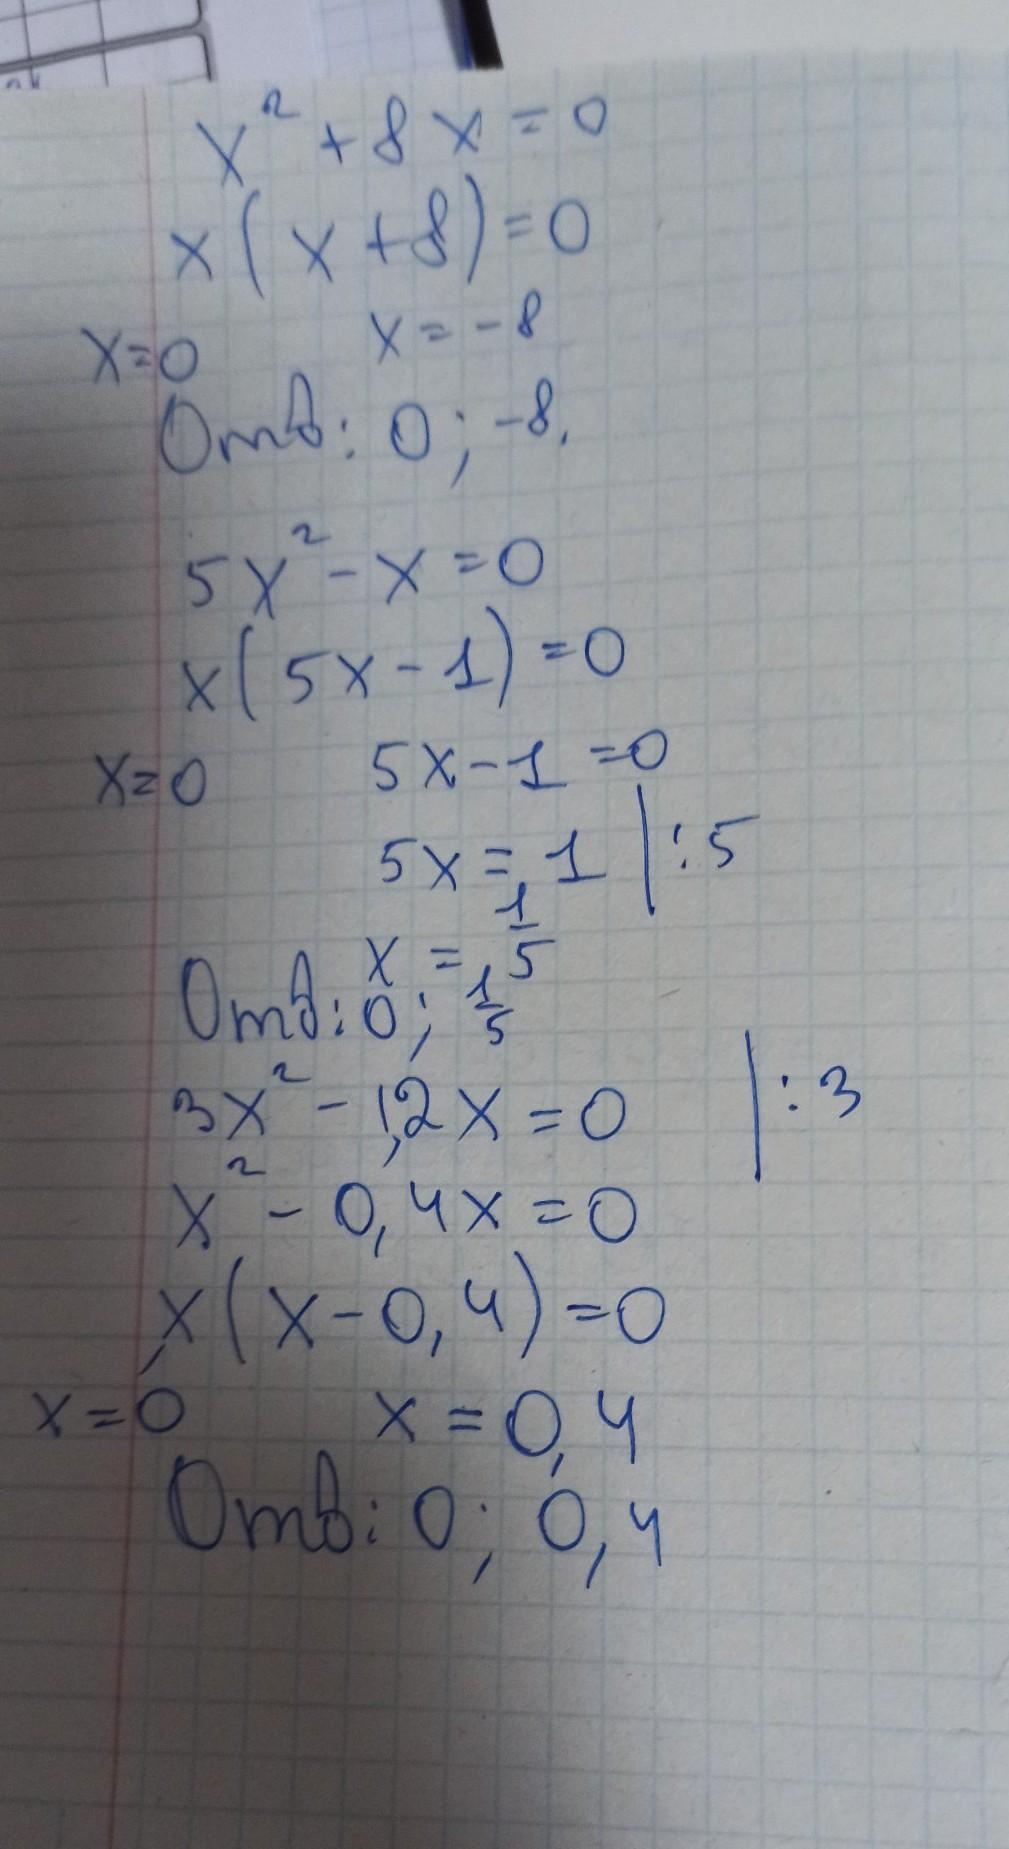 x² + 8x = 0
x(x+8) = 0
x=0 x = -8
Отв: 0; -8.
5x² - x = 0
x(5x - 1) = 0
x=0 5x - 1 = 0
5x = 1 | :5
x = 1/5
Отв: 0; 1/5
3x² - 1,2x = 0 | :3
x² - 0,4x = 0
x(x - 0,4) = 0
x = 0 x = 0,4
Отв: 0; 0,4